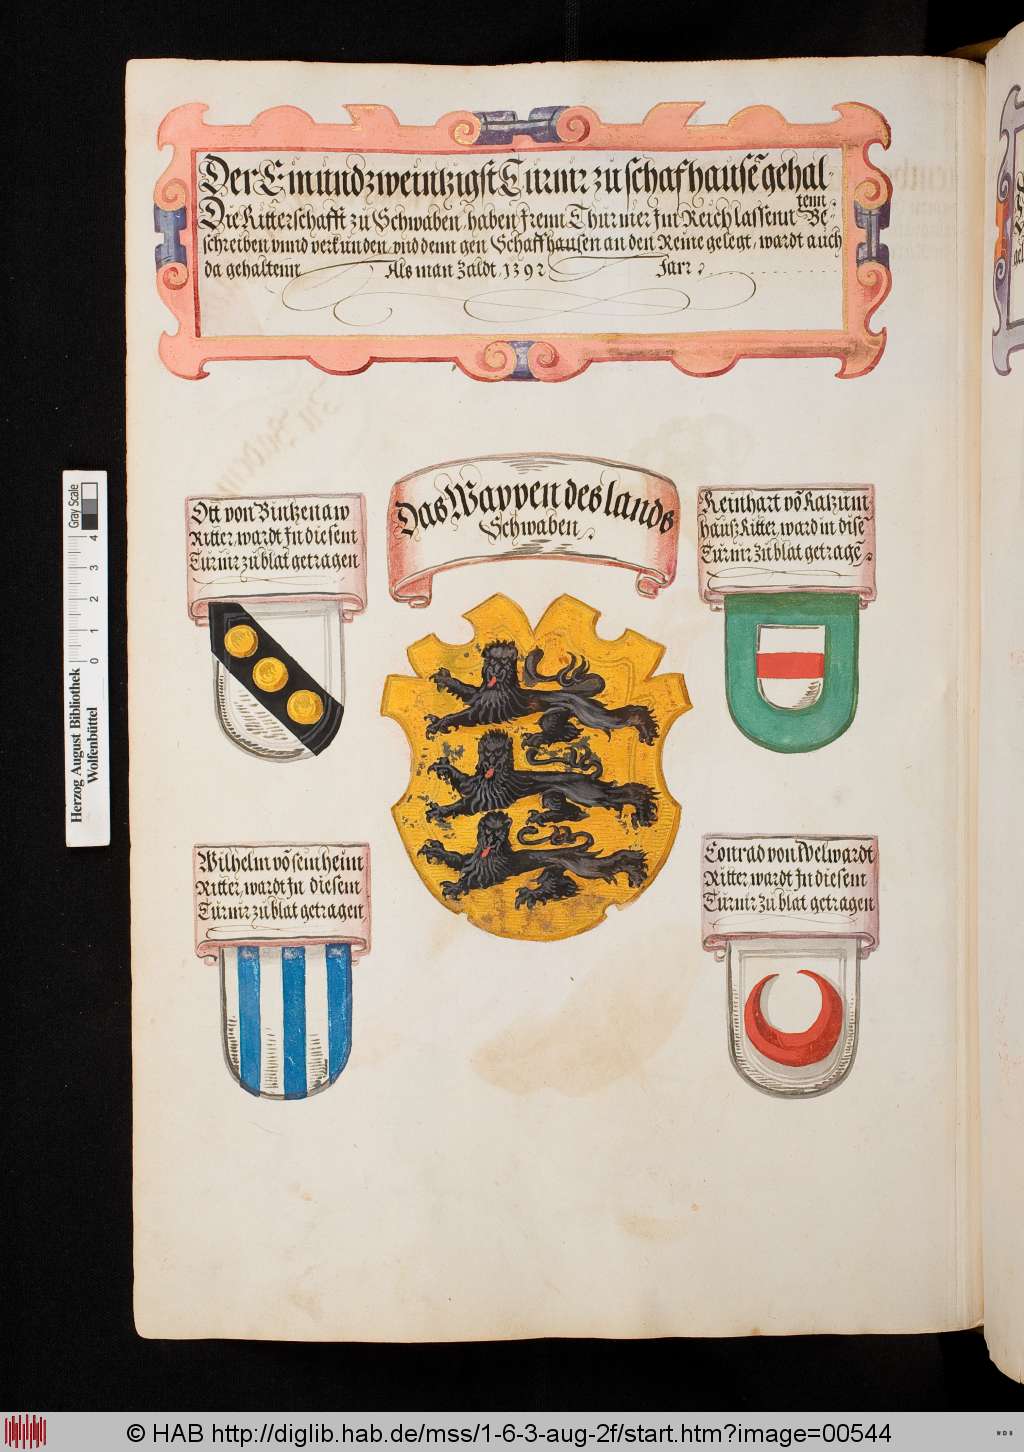 Der Einundzweintzigst Turnir zu schafhausē gehal-
tenn.
Die Ritterschafft zu Schwaben, haben Irenn Thurnier Im Reich lassenn Be-
schreiben vnnd verkunden, vnd denn gen Schaffhausen an den Reine gelegt, wardt auch
da gehaltenn Als man Zaldt, 1392 Jarr.
Das Wappen des lands
Schwaben.
Ott von
Ritter, wardt In diesem
Turnir zu blat getragen
Reinhart vō Katznn
hauß Ritter, ward in disē
Turnir zu blat getragē.
Wilhelm vō senheim
Ritter, wardt In diesem
Turnir zu blat getragen,
Conrad von Welwardt,
Ritter, wardt In diesem
Turnir zu blat getragen
Herzog August Bibliothek
Wolfenbüttel
0 1 2 3 4
Gray Scale
© HAB http://diglib.hab.de/mss/1-6-3-aug-2f/start.htm?image=00544